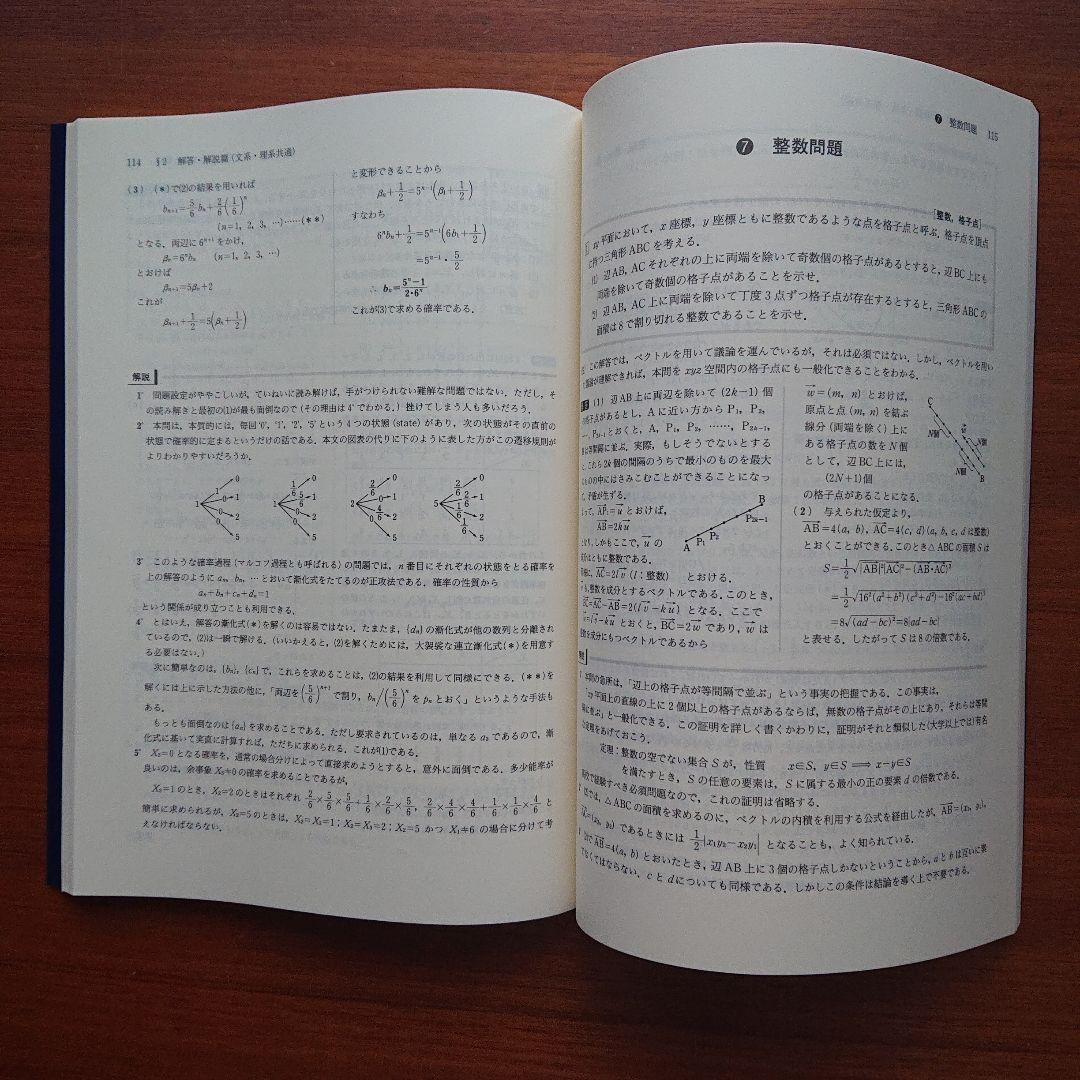 114 §2 解答・解説篇(文系・理系共通)
(3) (*)で(2)の結果を用いれば
bₙ₊₁=5/6 bₙ+2/6(1/6)ⁿ
(n=1, 2, 3, …)……(**)
となる.両辺に6ⁿ⁺¹をかけ,
βₙ=6ⁿbₙ (n=1, 2, 3, …)
とおけば
βₙ₊₁=5βₙ+2
これが
βₙ₊₁+1/2=5(βₙ+1/2)
と変形できることから
βₙ+1/2=5ⁿ⁻¹(β₁+1/2)
すなわち
6ⁿbₙ+1/2=5ⁿ⁻¹(6b₁+1/2)
=5ⁿ⁻¹・5/2
∴ bₙ=(5ⁿ-1)/(2・6ⁿ)
これが(3)で求める確率である.
解説
1° 問題設定がややこしいが,ていねいに読み解けば,手がつけられない難解な問題ではない.ただし,そ
の読み解きと最初の(1)が最も面倒なので(その理由は4°でわかる.)挫けてしまう人も多いだろう.
2° 本問は,本質的には,毎回‘0’,‘1’,‘2’,‘5’という4つの状態(state)があり,次の状態がその直前の
状態で確率的に定まるというだけの話である.本文の図表の代りに下のように表した方がこの遷移規則が
よりわかりやすいだろうか.
3° このような確率過程(マルコフ過程とも呼ばれる)の問題では,n番目にそれぞれの状態をとる確率を
上の解答のようにaₙ, bₙ, …とおいて漸化式をたてるのが正攻法である.確率の性質から
aₙ+bₙ+cₙ+dₙ=1
という関係が成り立つことも利用できる.
4° とはいえ,解答の漸化式(*)を解くのは容易ではない.たまたま,{dₙ}の漸化式が他の数列と分離され
ているので,(2)は一瞬で解ける.(いいかえると,(2)を解くためには,大袈裟な連立漸化式(*)を用意す
る必要はない.)
次に簡単なのは,{bₙ}, {cₙ}で,これらを求めることは,(2)の結果を利用して同様にできる.(**)を
解くには上に示した方法の他に,「両辺を(5/6)ⁿ⁺¹で割り,bₙ/(5/6)ⁿをpₙとおく」というような手法も
ある.
もっとも面倒なのは{aₙ}を求めることである.ただし要求されているのは,単なるa₃であるので,漸
化式に基いて実直に計算すれば,ただちに求められる.これが(1)である.
5° X₃=0となる確率を,通常の場合分けによって直接求めようとすると,意外に面倒である.多少能率が
良いのは,余事象X₃≠0の確率を求めることであるが,
X₃=1のとき,X₃=2のときはそれぞれ 2/6×5/6×5/6+1/6×2/6×5/6, 2/6×4/6×4/6+1/6×1/6×4/6 と
簡単に求められるが,X₃=5のときは,X₂=X₃=1; X₂=X₃=2; X₂=5かつX₁≠6の場合に分けて考
えなければならない.
❼ 整数問題 115
❼ 整数問題
[整数,格子点]
xy平面において,x座標,y座標ともに整数であるような点を格子点と呼ぶ.格子点を頂点
に持つ三角形ABCを考える.
(1) 辺AB, ACそれぞれの上に両端を除いて奇数個の格子点があるとすると,辺BC上にも
両端を除いて奇数個の格子点があることを示せ.
2) 辺AB, AC上に両端を除いて丁度3点ずつ格子点が存在するとすると,三角形ABCの
面積は8で割り切れる整数であることを示せ.
この解答では,ベクトルを用いて議論を運んでいるが,それは必須ではない.しかし,ベクトルを用い
議論が理解できれば,本問をxyz空間内の格子点にも一般化できることをわかる.
(1) 辺AB上に両辺を除いて(2k-1)個
格子点があるとし,Aに近い方からP₁, P₂,
…, P₂ₖ₋₁とおくと,A, P₁, P₂, ……, P₂ₖ₋₁,
は等間隔に並ぶ.実際,もしそうでないとする
,これら2k個の間隔のうちで最小のものを最大
ものの中にはさみこむことができることになっ
て,矛盾が生ずる.
って,AP₁=uとおけば,
AB=2ku
となり,しかもここで,uの
成分はともに整数である.
様に,AC=2lv (l:整数) とおける.
も,整数を成分とするベクトルである.このとき,
BC=AC-AB=2(lv-ku)となる.ここで
w=lv-kuとおくと,BC=2wであり,wは
整数を成分にもつベクトルであるから
A P₁ P₂ P₂ₖ₋₁ B
w=(m, n)とおけば,
原点と点(m, n)を結ぶ
線分(両端を除く)上に
ある格子点の数をN個
として,辺BC上には,
(2N+1)個
の格子点があることになる.
C N個 N個 B
(2) 与えられた仮定より,
AB=4(a, b), AC=4(c, d)(a, b, c, dは整数)
とおくことができる.このとき△ABCの面積Sは
S=1/2√(|AB|²|AC|²-(AB・AC)²)
=1/2√(16²(a²+b²)(c²+d²)-16²(ac+bd)²)
=8√((ad-bc)²)=8|ad-bc|
と表せる.したがってSは8の倍数である.
の急所は,「辺上の格子点が等間隔で並ぶ」という事実の把握である.この事実は,
xy平面上の直線の上に2個以上の格子点があるならば,無数の格子点がその上にあり,それらは等間
隔に並ぶ」と一般化できる.この証明を詳しく書くかわりに,証明がそれと類似した(大学以上では)有名
な定理をあげておこう.
定理:整数の空でない集合Sが,性質 x∈S, y∈S ⟹ x-y∈S
を満たすとき,Sの任意の要素は,Sに属する最小の正の要素dの倍数である.
で経験すべき必須問題なので,これの証明は省略する.
では,△ABCの面積を求めるのに,ベクトルの内積を利用する公式を経由したが,AB=(x₁, y₁),
AC=(x₂, y₂)であるときには 1/2|x₁y₂-x₂y₁| となることも,よく知られている.
でAB=4(a, b)とおいたとき,辺AB上に3個の格子点しかないということから,aとbは互いに素
でなくてはならない.cとdについても同様である.しかしこの条件は結論を導く上で不要である.